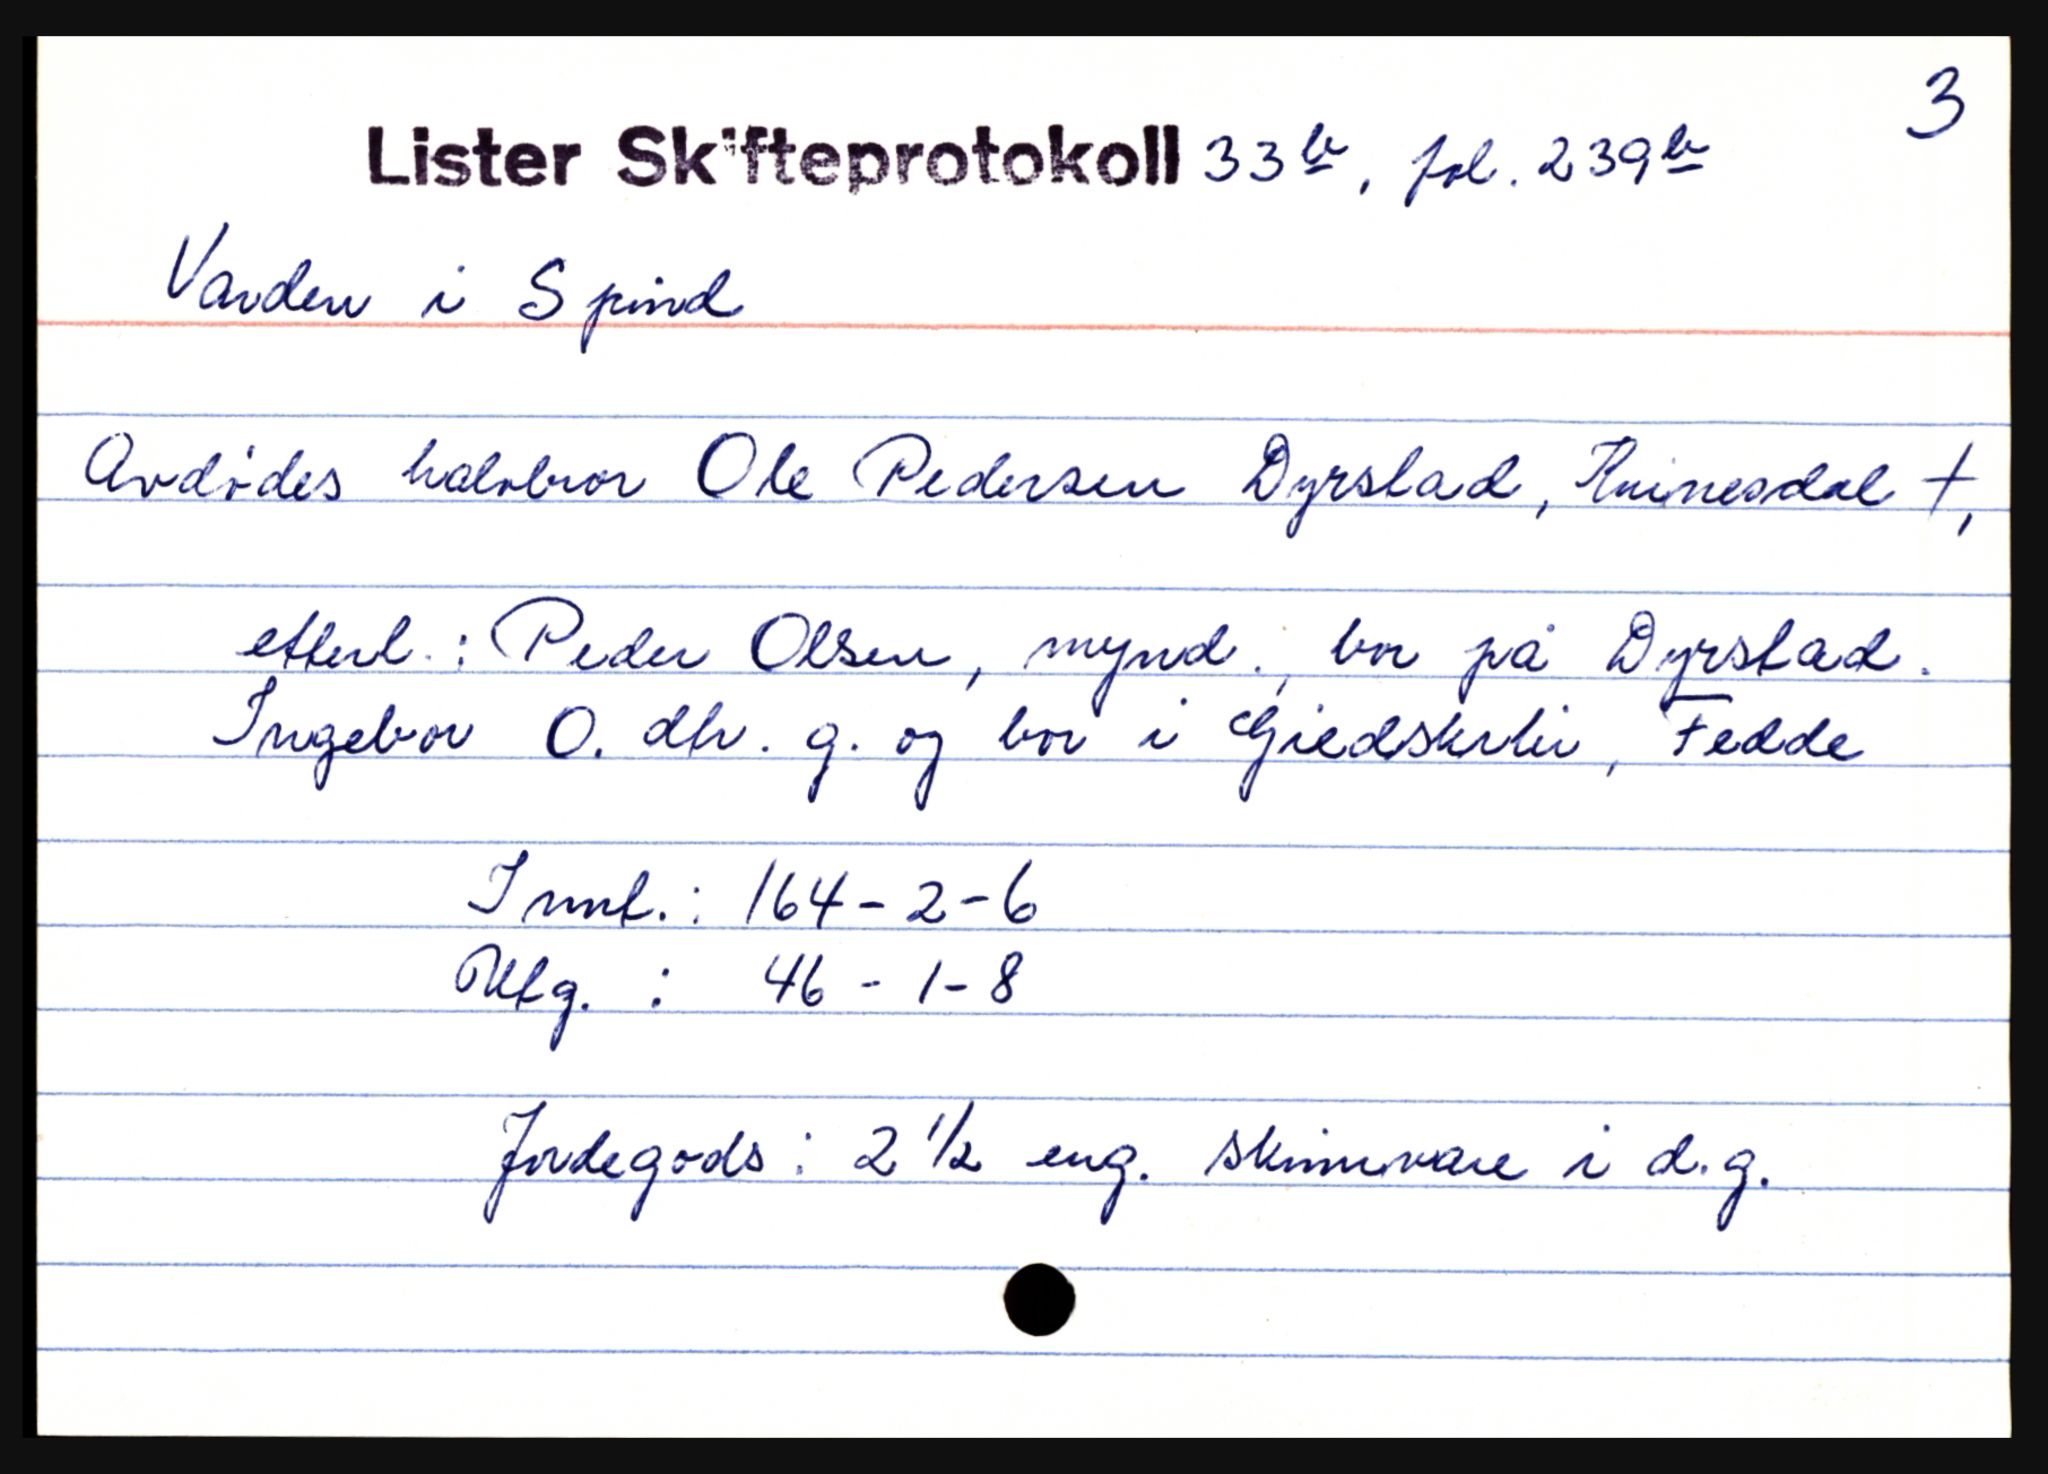 3
Lister Skifteprotokoll 33b, fol. 239b
Varden i Spind
Avdødes halvbror Ole Pedersen Dyrstad, Kvinesdal +,
etterl.: Peder Olsen, mynd., bor på Dyrstad.
Ingebor O. dtr. g. og bor i Giedskleiv, Fedde
Innt.: 164-2-6
Utg. : 46-1-8
Jordegods: 2 1/2 eng. skinnvare i d.g.